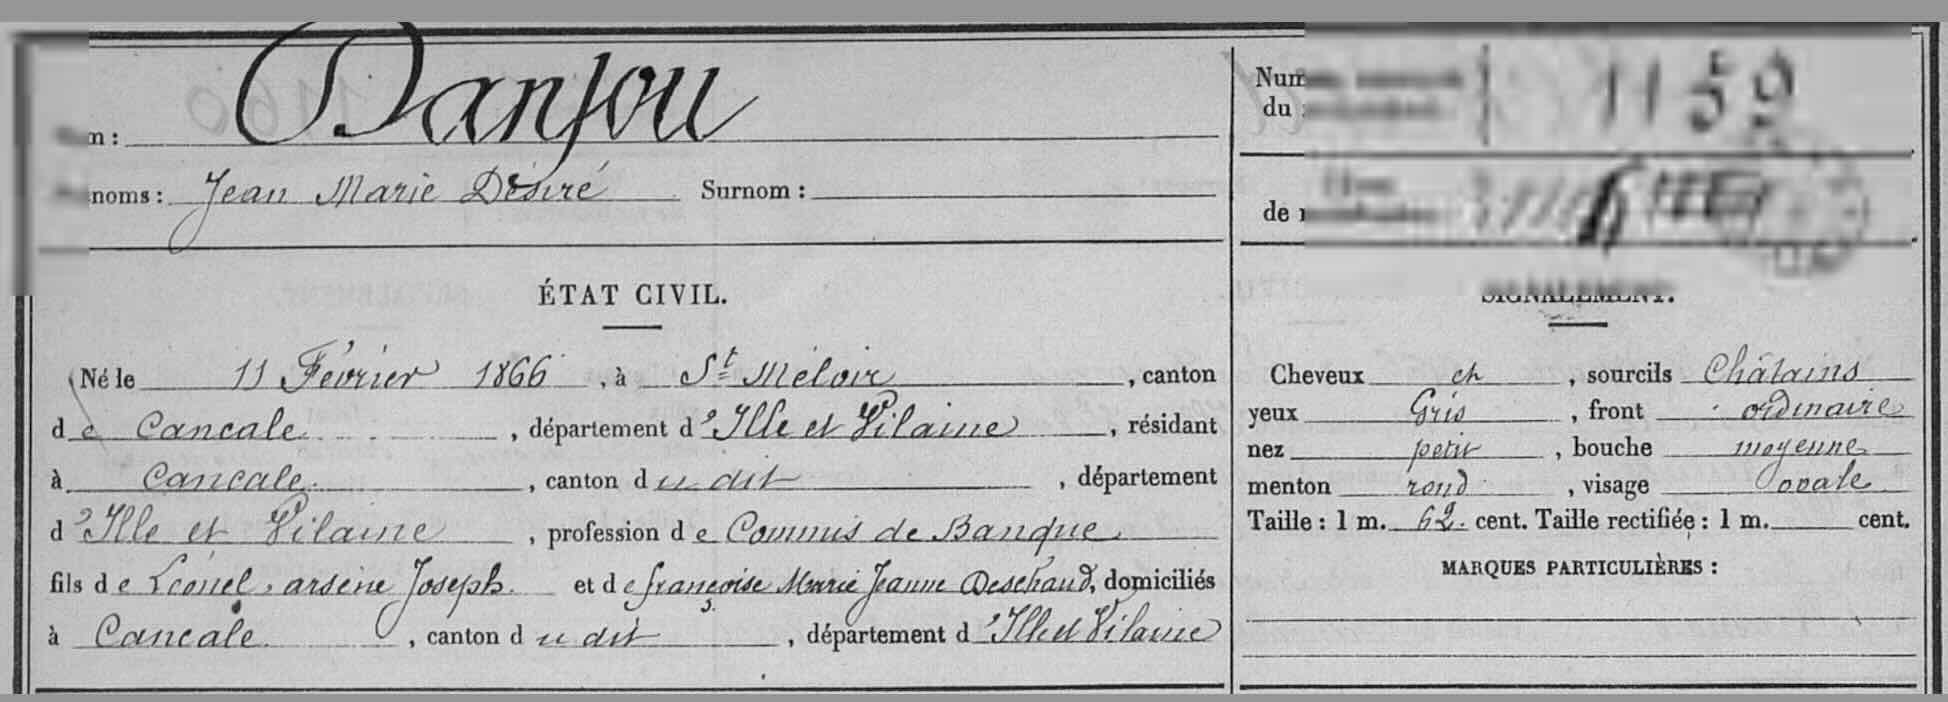 Danjou
noms : Jean Marie Désiré Surnom :
1159
ÉTAT CIVIL.
SIGNALEMENT.
Né le 11 Février 1866, à St Méloir, canton
de Cancale, département d'Ille et Vilaine, résidant
à Cancale, canton du dit, département
d'Ille et Vilaine, profession de Commis de Banque
fils de Léonel, arsène Joseph. et de françoise Marie Jeanne Deschaud, domiciliés
à Cancale, canton du dit, département d'Ille et Vilaine
Cheveux ch, sourcils Châtains
yeux Gris, front ordinaire
nez petit, bouche moyenne
menton rond, visage ovale
Taille : 1 m. 62. cent. Taille rectifiée : 1 m. cent.
MARQUES PARTICULIÈRES :